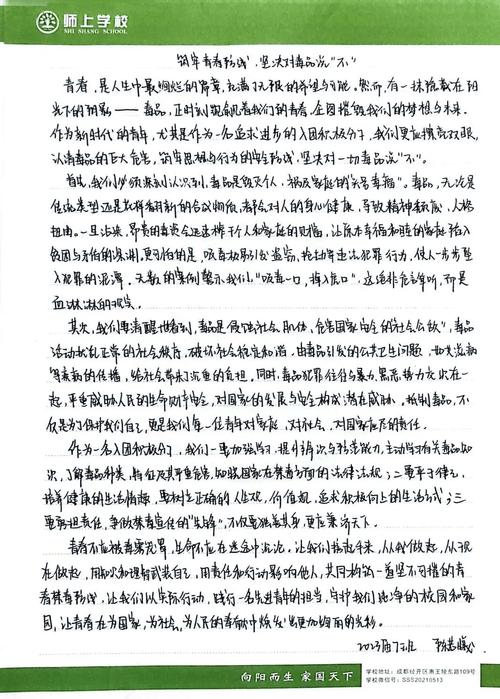 师上学校
SHI SHANG SCHOOL
筑牢青春防线，坚决对毒品说“不”
青春，是人生中最绚烂的篇章，充满了无限的希望与可能。然而，有一抹隐藏在阳
光下的阴影——毒品，正时刻觊觎着我们的青春，企图摧毁我们的梦想与未来。
作为新时代的青年，尤其是作为一名追求进步的入团积极分子，我们更应擦亮双眼，
认清毒品的巨大危害，筑牢思想与行为的安全防线，坚决对一切毒品说“不”。
首先，我们必须深刻认识到，毒品是毁灭个人、祸及家庭的“头号毒瘤”。毒品，无论是
传统类型还是花样翻新的合成物质，都会对人的身心健康，导致精神颓废、人格
扭曲。一旦沾染，昂贵的毒资会迅速掏干个人和家庭的积蓄，让原本幸福和睦的家庭陷入
贫困与矛盾的深渊，更可怕的是，吸毒极易引发盗窃、抢劫等违法犯罪行为，使人一步步坠
入犯罪的泥潭。无数的案例警示我们，“吸毒一口，掉入虎口”，这绝非危言耸听，而是
血淋淋的现实。
其次，我们要清醒地看到，毒品是侵蚀社会肌体、危害国家安全的社会公敌”，毒品
活动扰乱正常的社会秩序，破坏社会稳定和谐。由毒品引发的公共卫生问题，如艾滋病
等疾病的传播，给社会带来了沉重的负担。同时，毒品犯罪往往与暴力、黑恶势力交织在一
起，严重威胁人民的生命财产安全，对国家的发展与安全构成潜在威胁。抵制毒品，不
仅是为了保护我们自己，更是我们每一位青年对家庭、对社会、对国家应尽的责任。
作为一名入团积极分子，我们一要加强学习，提升辨识与防范能力，主动学习有关毒品知
识，了解毒品种类、特征及其严重危害，知晓国家在禁毒方面的法律法规；二要严于律己，
培养健康的生活情趣，要树立正确的人生观、价值观，追求积极向上的生活方式；三
要勇担责任，争做禁毒宣传的“先锋”，不仅要独善其身，更应兼济天下。
青春不应被毒雾笼罩，生命不应在迷途中沉沦。让我们携起手来，从我做起，从现
在做起，用知识和理智武装自己，用责任和行动影响他人，共同构筑一道坚不可摧的青
春禁毒防线，让我们以实际行动，践行一名先进青年的担当，守护我们纯净的校园和家
园，让青春在为国家、为社会、为人民的奉献中焕发出更加绚丽的光彩。
2023届7班
向阳而生 家国天下
学校地址：成都经开区南王陵东路109号
学校微信号：SSS20210513